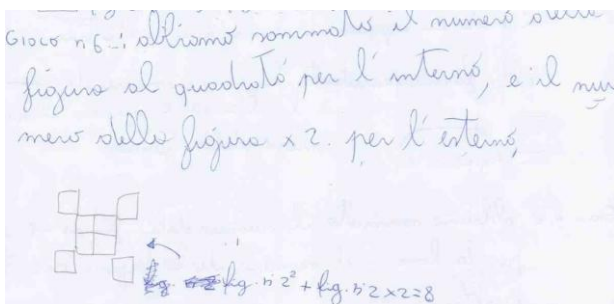 Gioco n 6: abbiamo sommato il numero della
figura al quadrato per l'interno, e il nu
mero della figura x 2. per l'esterno,
fig. n 2² + fig. n 2 x 2 = 8